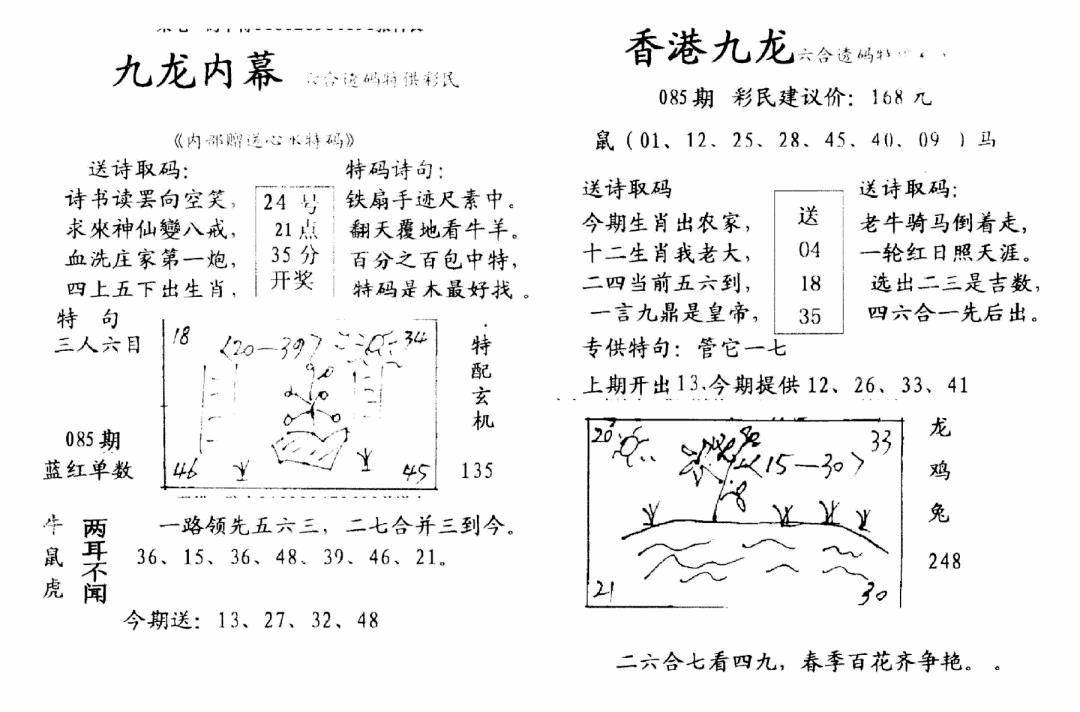 九龙内幕 六合透码特供彩民
《内部赠送心水特码》
送诗取码：
诗书读罢向空笑，
求來神仙變八戒，
血洗庄家第一炮，
四上五下出生肖，
24 号
21 点
35 分
开奖
特码诗句：
铁扇手迹尺素中。
翻天覆地看牛羊。
百分之百包中特，
特码是木最好找。
特 句
三人六目
085期
蓝红单数
18
〈20—39〉
34
46
45
特配玄机
135
牛
鼠
虎
两耳不闻
一路领先五六三，二七合并三到今。
36、15、36、48、39、46、21。
今期送：13、27、32、48
香港九龙 六合透码特
085期 彩民建议价：168 元
鼠（01、12、25、28、45、40、09 ）马
送诗取码
今期生肖出农家，
十二生肖我老大，
二四当前五六到，
一言九鼎是皇帝，
送
04
18
35
送诗取码：
老牛骑马倒着走，
一轮红日照天涯。
选出二三是吉数，
四六合一先后出。
专供特句：管它一七
上期开出13.今期提供 12、26、33、41
20
33
〈15—30〉
21
30
龙
鸡
兔
248
二六合七看四九，春季百花齐争艳。。